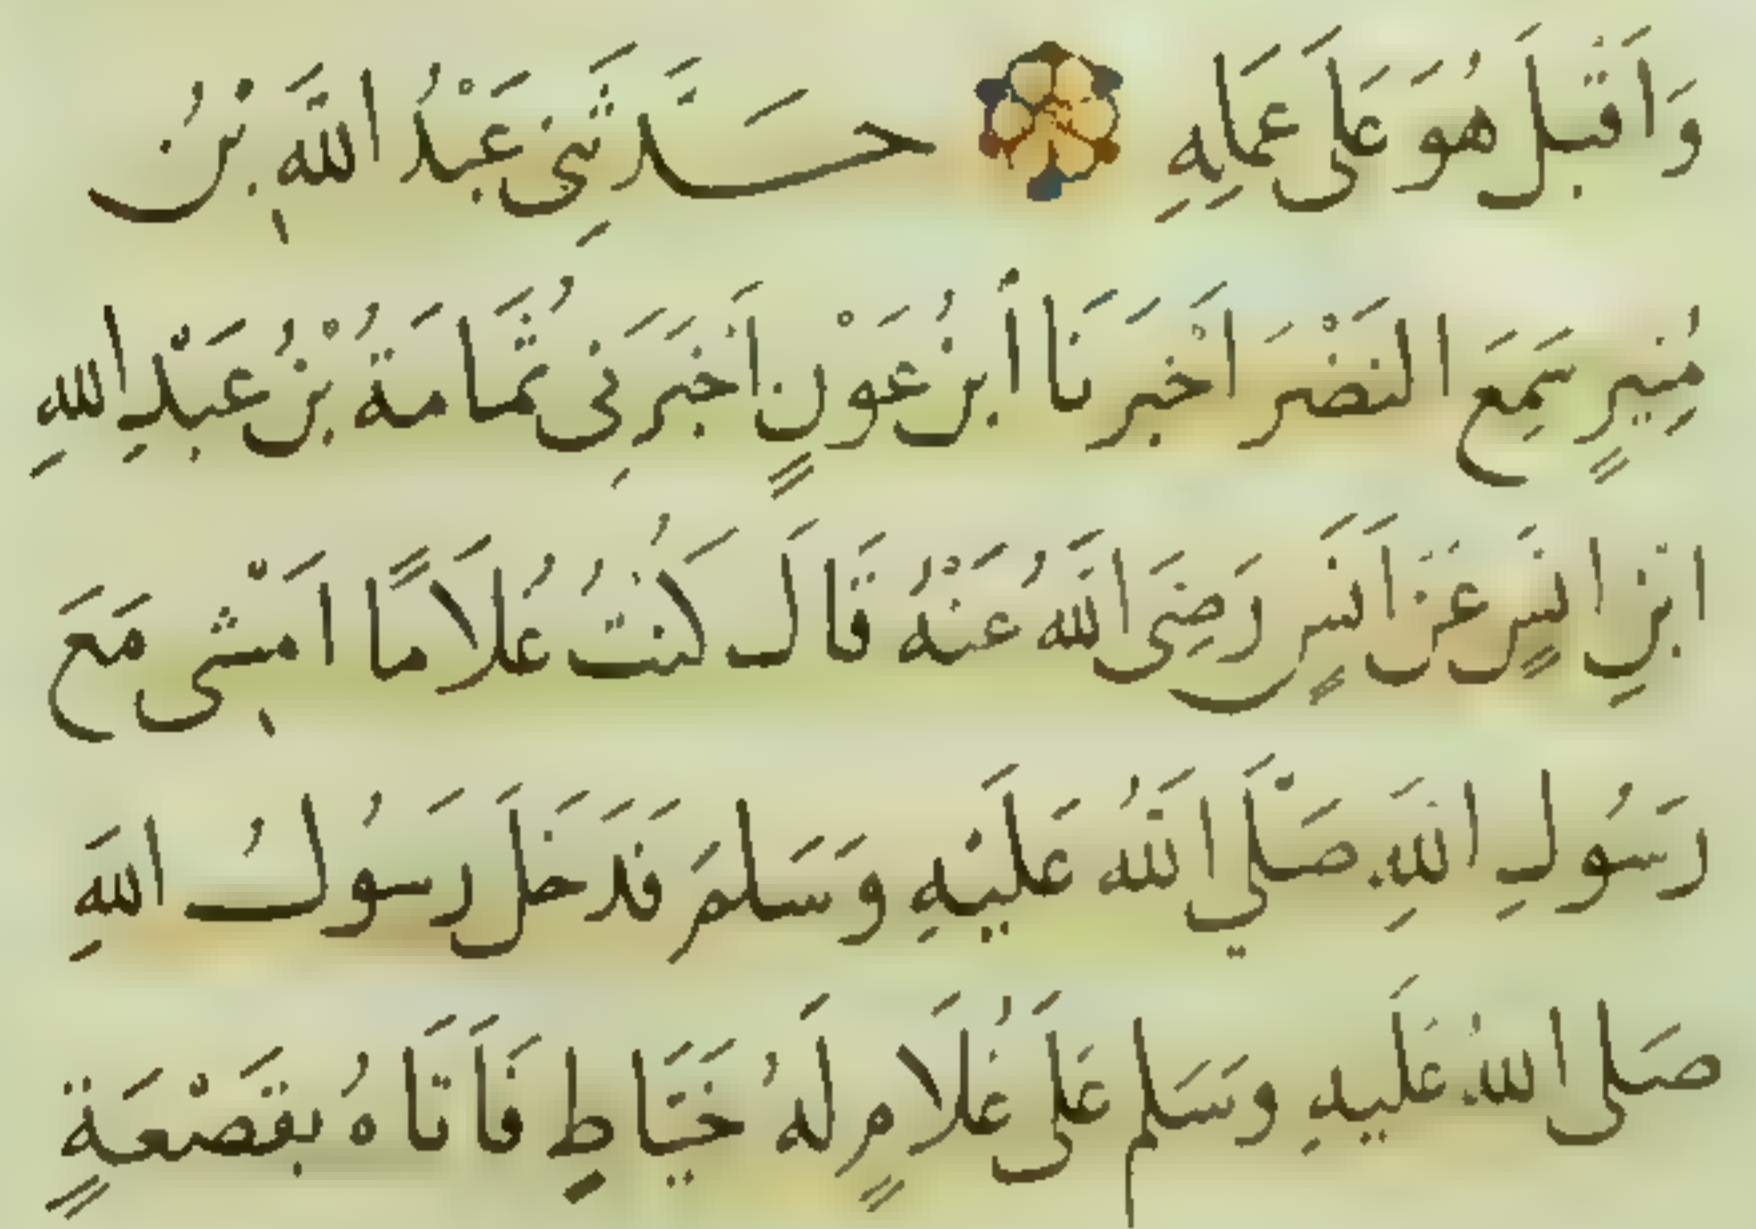 وَاَقْبَلَ هُوَ عَلَى عَمَلِهِ حَدَّثَنِى عَبْدُ اللَّهِ بْنُ
مُنِيرٍ سَمِعَ النَضْرَ اَخْبَرَنَا اُبنُ عَوْنٍ اَخْبَرَنِى ثُمَامَةُ بْنُ عَبْدِ اللهِ
ابْنِ اَنَسٍ عَنْ اَنَسٍ رَضِىَ اللَّهُ عَنْهُ قَالَ كُنْتُ غُلَامًا اَمْشِى مَعَ
رَسُولِ اللَّهِ صَلَّي اللَّهُ عَلَيْهِ وَسَلمَ فَدَخَلَ رَسُولُ اللهِ
صَلى اللهُ عَلَيهِ وَسَلم عَلَى غُلَامٍ لَهُ خَيَّاطٍ فَاَتَاهُ بقَصْعَةٍ